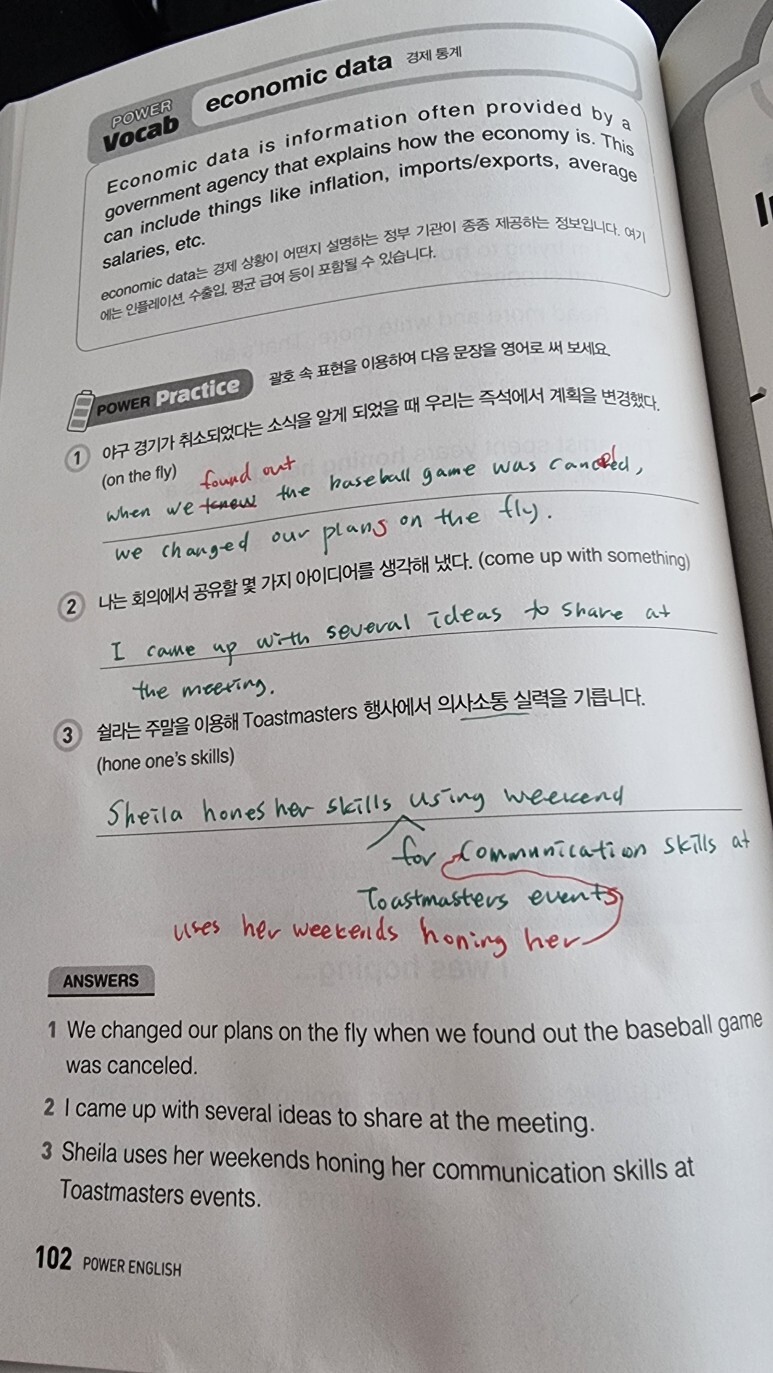 POWER Vocab economic data 경제 통계
Economic data is information often provided by a
government agency that explains how the economy is. This
can include things like inflation, imports/exports, average
salaries, etc.
economic data는 경제 상황이 어떤지 설명하는 정부 기관이 종종 제공하는 정보입니다. 여기
에는 인플레이션, 수출입, 평균 급여 등이 포함될 수 있습니다.
POWER Practice 괄호 속 표현을 이용하여 다음 문장을 영어로 써 보세요.
1 야구 경기가 취소되었다는 소식을 알게 되었을 때 우리는 즉석에서 계획을 변경했다.
(on the fly) found out
when we knew the baseball game was canceled,
we changed our plans on the fly.
2 나는 회의에서 공유할 몇 가지 아이디어를 생각해 냈다. (come up with something)
I came up with several ideas to share at
the meeting.
3 쉴라는 주말을 이용해 Toastmasters 행사에서 의사소통 실력을 기릅니다.
(hone one's skills)
Sheila hones her skills using weekend
for communication skills at
Toastmasters events
uses her weekends honing her
ANSWERS
1 We changed our plans on the fly when we found out the baseball game
was canceled.
2 I came up with several ideas to share at the meeting.
3 Sheila uses her weekends honing her communication skills at
Toastmasters events.
102 POWER ENGLISH